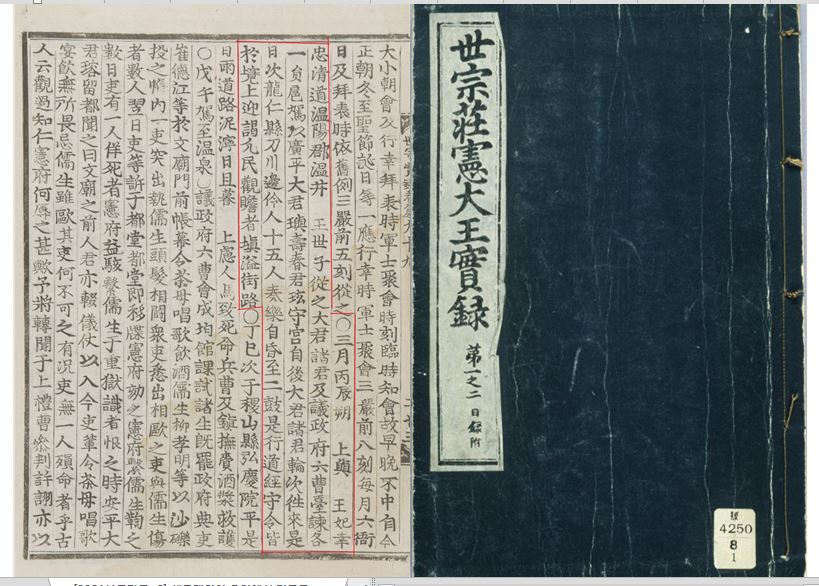 大小朝會及行幸拜表時軍士聚會時刻臨時知會故早晚不中自今
正朝冬至聖節誕日等一應行幸時軍士聚會三嚴前八刻每月六衙
日及拜表時依舊例三嚴前五刻從之○三月丙辰朔 上與 王妃幸
忠清道温陽郡温井 王世子從之大君諸君及議政府六曹臺諫各
一員扈駕以廣平大君璵壽春君玹守宮自後大君諸君輪次往來是
日次龍仁縣刀川邊伶人十五人奏樂自昏至二鼓是行道經守令皆
於境上迎謁凡民觀瞻者塡溢街路○丁巳次于稷山縣弘慶院平是
日雨道路泥濘日且暮 上慮人馬致死命兵曹及鎭撫賫酒漿救護
○戊午駕至温泉○議政府六曹會成均館課試諸生旣罷政府典吏
崔德江等於文廟門前帳幕令茶母唱歌飮酒儒生柳孝明等以沙礫
投之帳內一吏突出執儒生頭髮相鬪衆吏悉出相敺之吏與儒生傷
者數人翌日吏等訴于都堂都堂卽移牒憲府劾之憲府繫儒生鞫之
數日吏有一人佯死者憲府益駭繫儒生于重獄識者恨之時安平大
君瑢留都聞之曰文廟之前人君亦輟儀仗以入今吏輩令茶母唱歌
宴飮無所畏忌儒生雖敺其吏何不可之有況吏無一人殞命者乎古
人云觀過知仁憲府何辱之甚歟予將轉聞于上禮曹參判許詡亦以
世宗莊憲大王實錄 第一之二 目錄附
4250
8
1